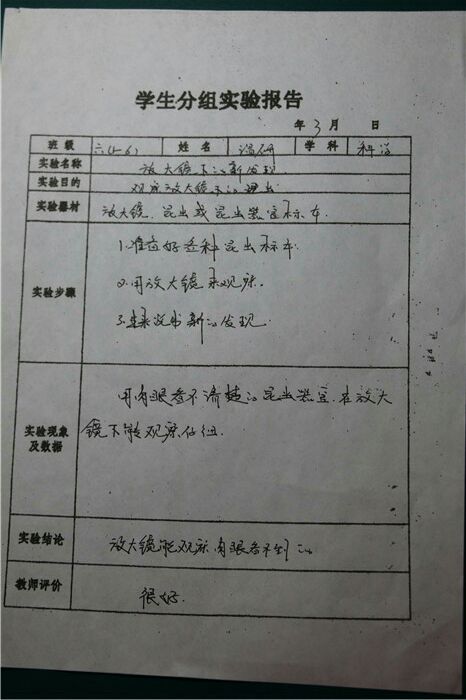 学生分组实验报告
年 3 月 日
班级 六(1-6) 姓名 调研 学科 科学
实验名称 放大镜下的新发现
实验目的 观察放大镜下的昆虫
实验器材 放大镜 昆虫或昆虫器官标本
实验步骤 1.准备好各种昆虫标本
2.用放大镜来观察.
3.记录说出新的发现
实验现象及数据 用肉眼看不清楚的昆虫器官在放大
镜下能观察仔细.
实验结论 放大镜能观察肉眼看不到的
教师评价 很好.